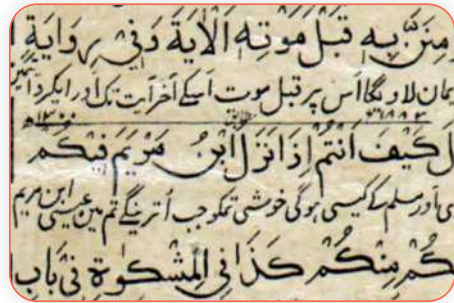 مِنَنَّ بِهٖ قَبْلَ مَوْتِهٖ اَلْاٰيَةَ وَفِيْ رِوَايَةٍ
مان لاویگا اس پر قبل موت اسکے آخر آیت تک اور ایک
كَيْفَ اَنْتُمْ اِذَا نَزَلَ ابْنُ مَرْيَمَ فِيْكُمْ
اور مسلم کے کیسی ہوگی خوشی تمکو جب اترینگے تم مین عیسی ابن مریم
كُمْ مِنْكُمْ كَذَا فِي الْمِشْكٰوةِ فِيْ بَابِ